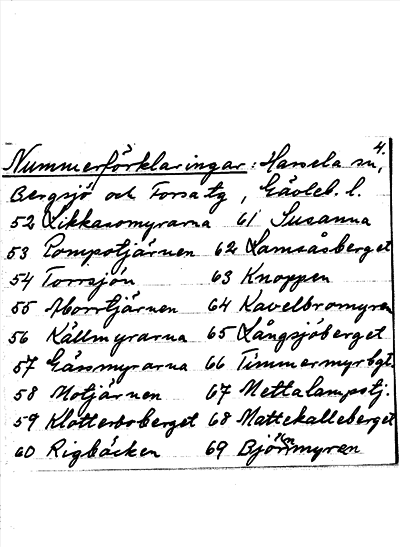 4.
Nummerförklaringar: Hassela sn,
Bergsjö och Forsa tg, Gävleb. l.
52 Likkasomyrarna 61 Susanna
53 Pompotjärnen 62 Lamsåsberget
54 Torrsjön 63 Knoppen
55 Morrtjärnen 64 Kavelbromyren
56 Källmyrarna 65 Långsjöberget
57 Gåssmyrarna 66 Timmermyrbgt.
58 Motjärnen 67 Mettalampstj.
59 Klotterboberget 68 Mattekalleberget
60 Rigbäcken 69 Björnmyren